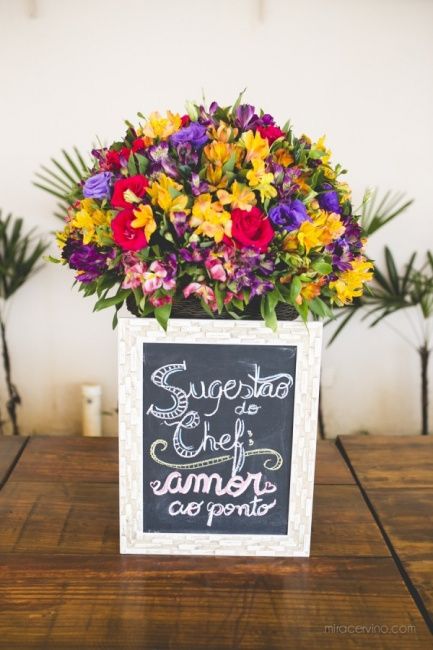 Sugestão
do
Chef:
amor
ao ponto
miracervino.com